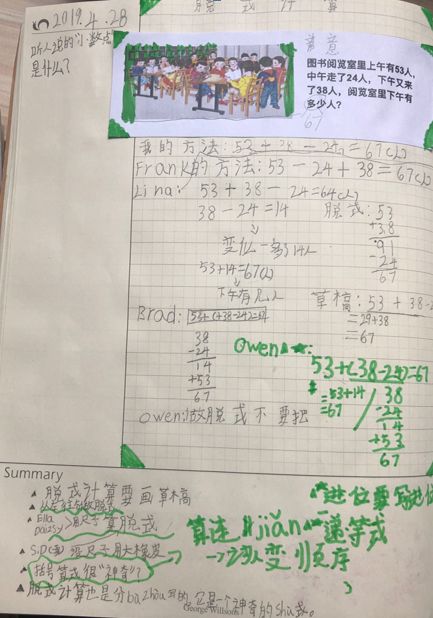 2019.4.28
脱 式 计 算
听人说的小数点
是什么?
图书阅览室里上午有53人,
中午走了24人,下午又来
了38人,阅览室里下午有
多少人?
67
我的方法:53+38-24=67(人)
Frank的方法:53-24+38=67(人)
Lina: 53+38-24=64(人)
38-24=14
变化一多了14人
53+14=67(人)
下午有几人
脱式:53
+38
91
-24
67
草稿:53+38-2
=29+38
=67
Brad:
38
-24
14
+53
67
Owen
53+(38-24)=67
=53+14
=67
38
-24
14
+53
67
Owen:做脱式不要把
Summary
脱式计算要画草稿
Ella
Daizy
算脱式
括号算式很“神奇”?
脱式计算也是分bu zhou写的,它是一个神奇的shu式。
进位要写进位
算连jiǎn 递等式
→ 变顺序
George Willson